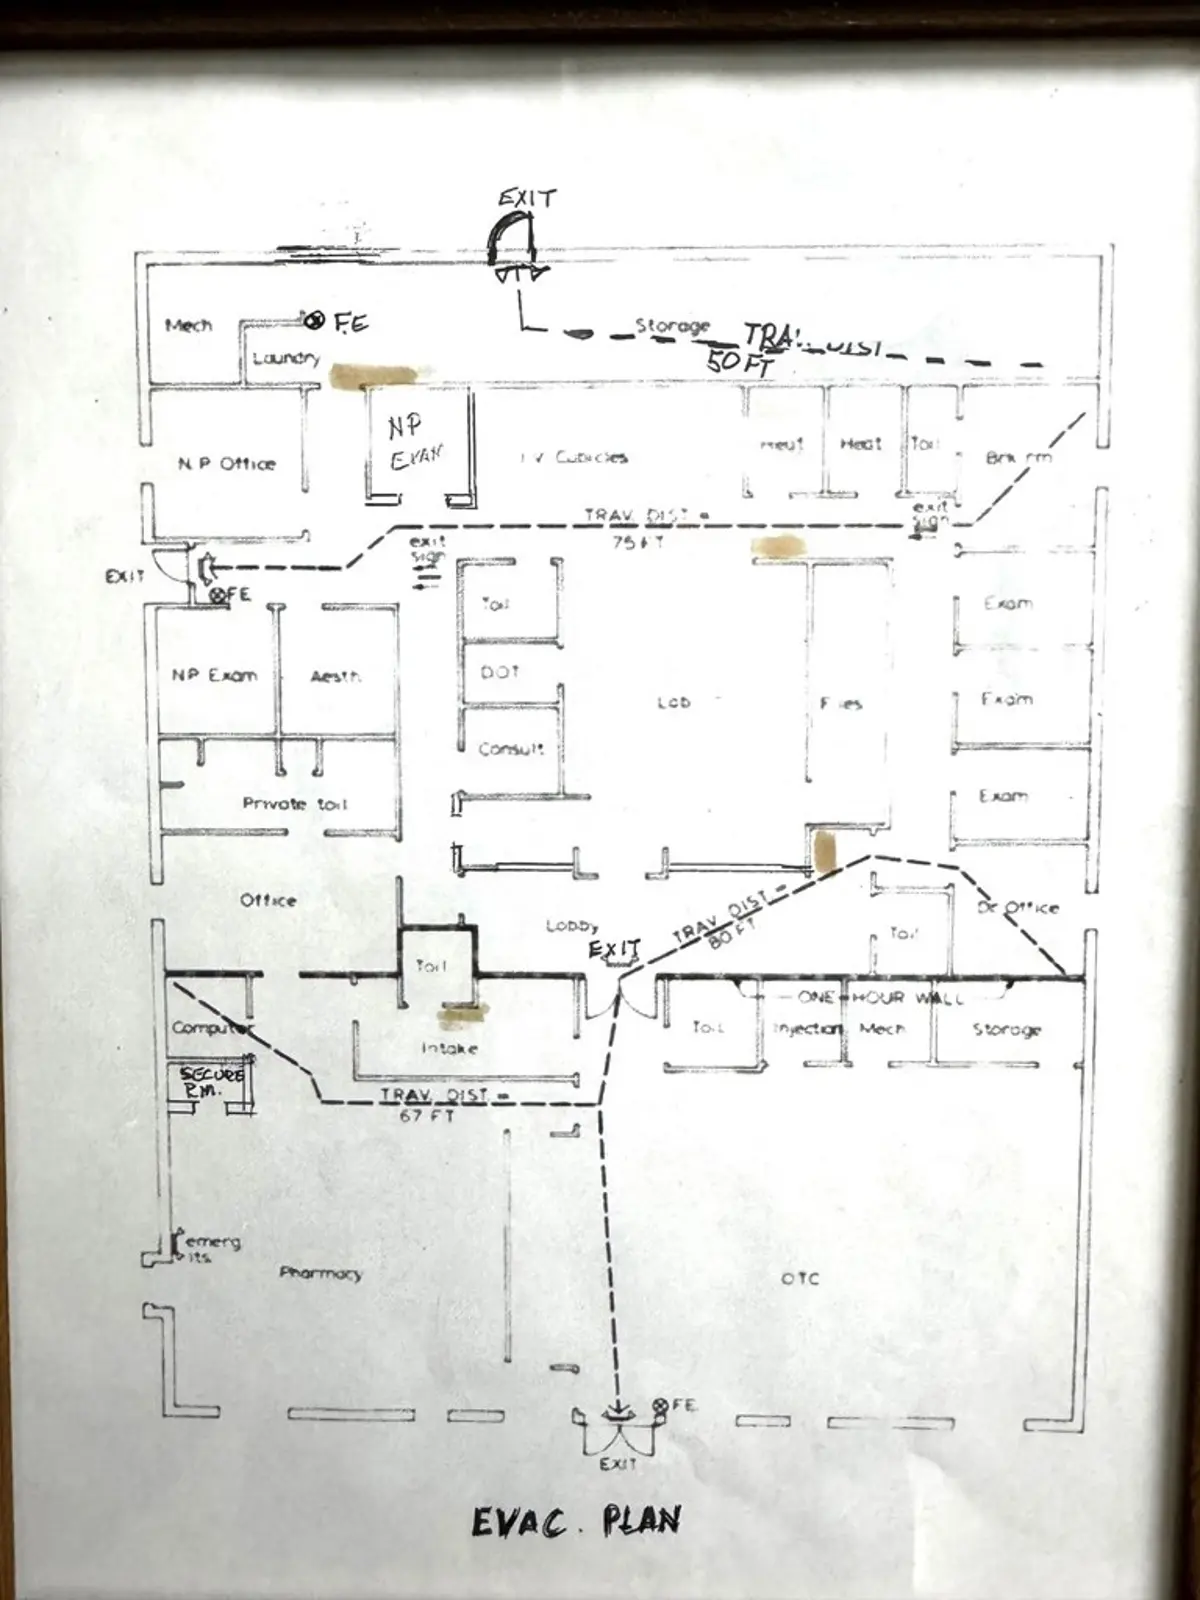 EXIT
Mech
F.E
Laundry
Storage
TRAV. DIST
50 FT
N.P. Office
NP
EXAM
I V Cubicles
Heat
Heat
Toil
Brk rm
TRAV. DIST. =
75 FT
exit
sign
exit
sign
EXIT
FE
NP Exam
Aesth
Toil
DOT
Consult
Lab
Files
Exam
Exam
Exam
Private toil
Office
Lobby
EXIT
TRAV. DIST =
80 FT
Toil
Dr Office
Toil
ONE-HOUR WALL
Computer
Intake
Toil
Injection
Mech
Storage
SECURE
RM.
TRAV. DIST. =
67 FT
emerg
lts
Pharmacy
OTC
FE
EXIT
EVAC. PLAN